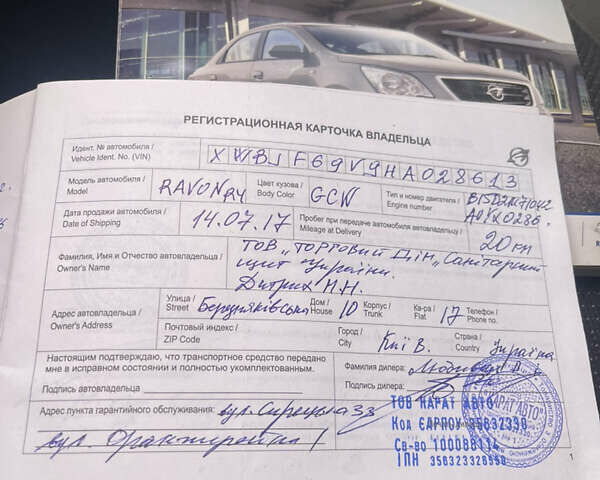 РЕГИСТРАЦИОННАЯ КАРТОЧКА ВЛАДЕЛЬЦА
Идент. № автомобиля /
Vehicle Ident. No. (VIN)
XWBJF69V9HA028613
Модель автомобиля /
Model
RAVON R4
Цвет кузова /
Body Color
GCW
Тип и номер двигателя /
Engine number
Дата продажи автомобиля /
Date of Shipping
14.07.17
Пробег при передаче автомобиля владельцу /
Mileage at Delivery
20
Фамилия, Имя и Отчество автовладельца /
Owner's Name
ТОВ „Торговий Дім „Санітарний
щит України.
Дитрих Н.Н.
Адрес автовладельца /
Owner's Address
Улица /
Street
Дом /
House
10
Корпус /
Trunk
Кв-ра /
Flat
17
Телефон /
Phone no.
Почтовый индекс /
ZIP Code
Город /
City
Київ.
Страна /
Country
Україна
Настоящим подтверждаю, что транспортное средство передано
мне в исправном состоянии и полностью укомплектованным.
Фамилия дилера:
Подпись автовладельца /
Подпись дилера:
Адрес пункта гарантийного обслуживания: вул. Сирецька 33
вул.
ТОВ КАРАТ АВТО
Код ЄДРПОУ 35832330
Св-во 100088114
ІПН
1